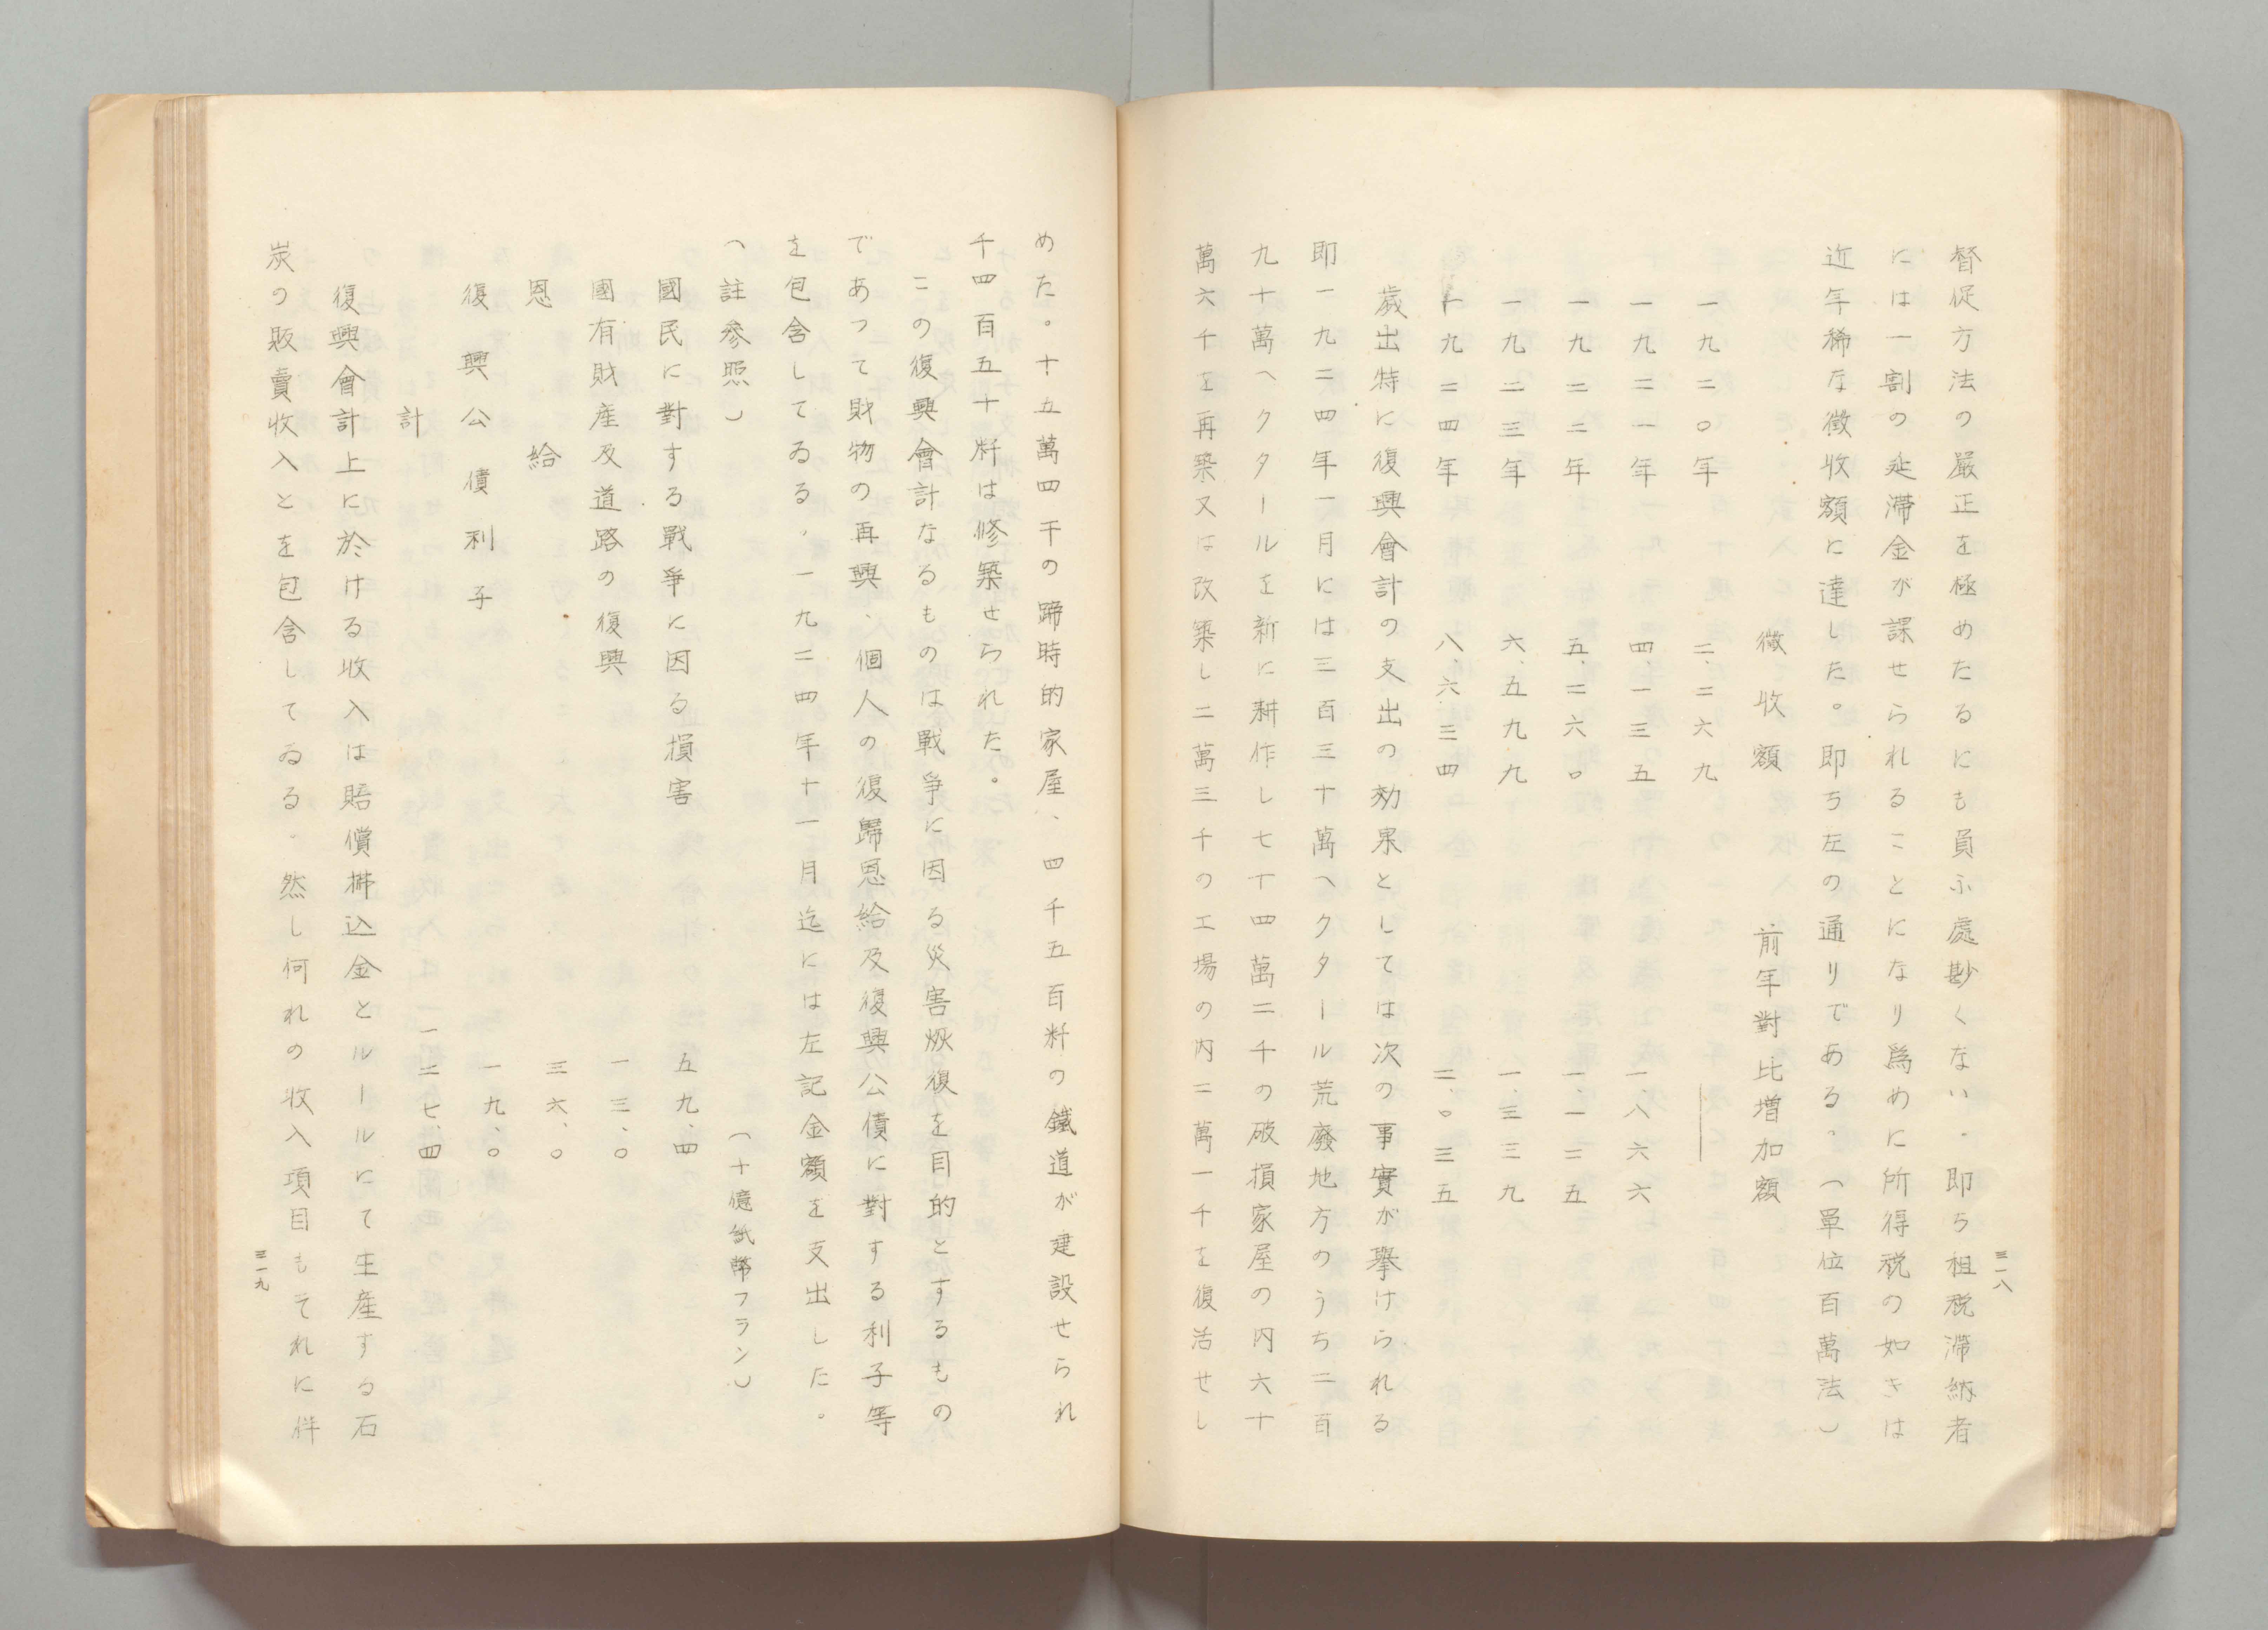 三一八
督促方法の嚴正を極めたるにも負ふ處尠くない。即ち租税滯納者
には一割の延滯金が課せられることになり爲めに所得税の如きは
近年稀な徴收額に達した。即ち左の通りである。(單位百萬法)
徴收額 前年對比增加額
一九二〇年 二、二六九 ―
一九二一年 四、一三五 一、八六六
一九二二年 五、二六〇 一、一二五
一九二三年 六、五九九 一、三三九
一九二四年 八、六三四 二、〇三五
歲出特に復興會計の支出の効果としては次の事實が擧けられる
即一九二四年一月には三百三十萬ヘクタール荒廢地方のうち二百
九十萬ヘクタールを新に耕作し七十四萬二千の破損家屋の内六十
萬六千を再築又は改築し二萬三千の工場の内二萬一千を復活せし
めた。十五萬四千の蹄時的家屋、四千五百粁の鐵道が建設せられ
千四百五十粁は修築せられた。
この復興會計なるものは戰爭に因る災害恢復を目的とするもの
であつて財物の再興、個人の復歸恩給及復興公債に對する利子等
を包含してゐる。一九二四年十一月迄には左記金額を支出した。
(註參照) (十億紙幣フラン)
國民に對する戰爭に因る損害 五九、四
國有財產及道路の復興 一三、〇
恩給 三六、〇
復興公債利子 一九、〇
計 一二七、四
復興會計上に於ける收入は賠償拂込金とルールにて生產する石
炭の販賣收入とを包含してゐる。然し何れの收入項目もそれに伴
三一九